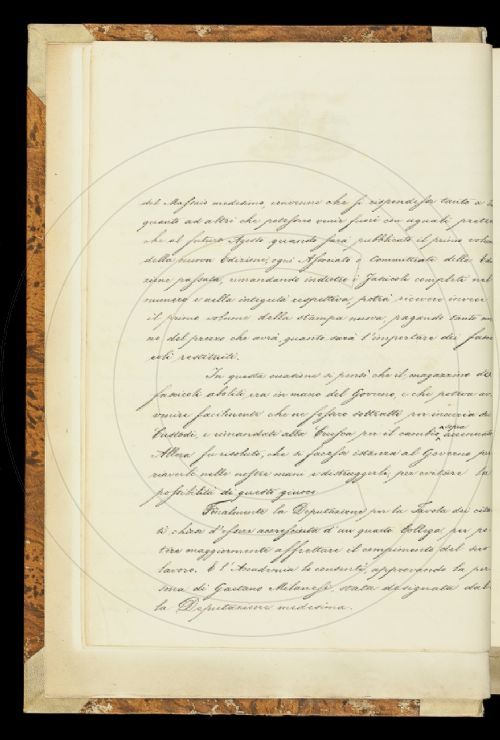 del Maestro medesimo, convenne che si rispondesse tanto a
quanto ad altri che potessero venir fuori con uguali
che al futuro Agosto quando sarà pubblicato il primo
della nuova Edizione, ogni Associato o Committente della
zione passata, rimandando indietro i Fascicoli completi nel
numero e nella integrità respettiva, potrà ricevere invece
il primo volume della stampa nuova, pagando tanto
no del prezzo che avrà quanto sarà l'importare dei
coli restituiti.
In questa occasione si pensò che il magazzino dei
fascicoli aboliti, era in mano del Governo, e che poteva
venire facilmente che ne fossero sottratti per incuria dei
Custodi, e rimandati alla Crusca per il cambio sopra accennato
Allora fu risoluto, che si facesse istanza al Governo per
riaverli nelle nostre mani e distruggerli, per evitare la
possibilità di questo giuoco
Finalmente la Deputazione per la Tavola dei
ti chiese d'essere accresciuta d'un quarto Collega per po
tere maggiormente affrettare il compimento del suo
lavoro. E l'Accademia lo consentì, approvando la per
sona di Gaetano Milanesi, stata designata dal
la Deputazione medesima.